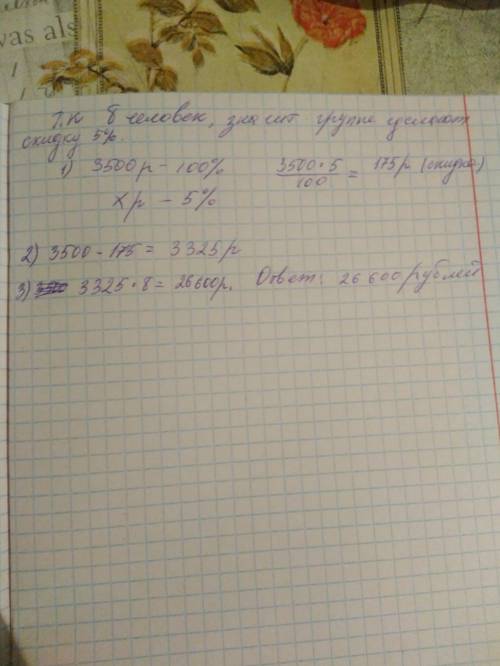 was als
Т.к 8 человек, значит группе сделают
скидку 5%.
1) 3500р - 100%
х р - 5%
3500·5/100 = 175р (скидка)
2) 3500 - 175 = 3325р
3) 3325·8 = 26600р. Ответ: 26 600 рублей